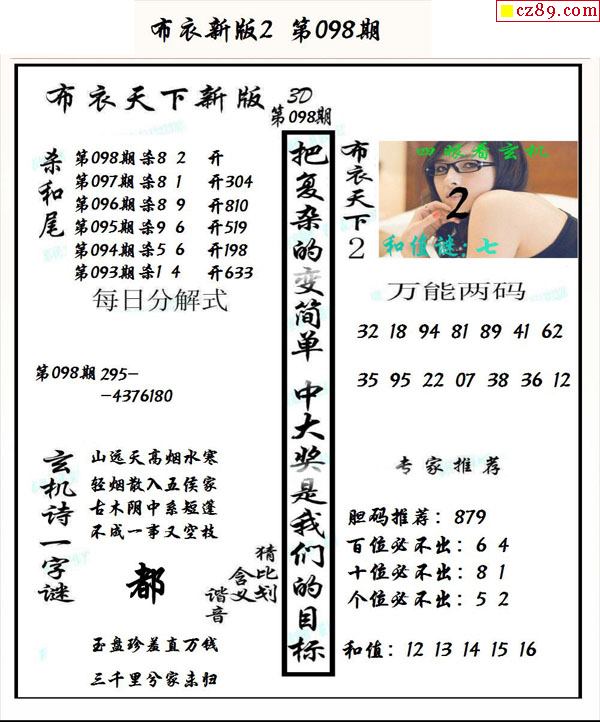 cz89.com
布衣新版2 第098期
布衣天下新版 3D
第098期
杀和尾
第098期杀8 2 开
第097期杀8 1 开304
第096期杀8 9 开810
第095期杀9 6 开519
第094期杀5 6 开198
第093期杀1 4 开633
每日分解式
第098期 295-
-4376180
玄机诗一字谜
山远天高烟水寒
轻烟散入五侯家
古木阴中系短蓬
不成一事又空枝
都
猜比划
含义
谐音
玉盘珍羞直万钱
三千里兮家未归
把复杂的变简单 中大奖是我们的目标
布衣天下2
四眼看玄机
2
和值谜:七
万能两码
32 18 94 81 89 41 62
35 95 22 07 38 36 12
专家推荐
胆码推荐：879
百位必不出：6 4
十位必不出：8 1
个位必不出：5 2
和值：12 13 14 15 16